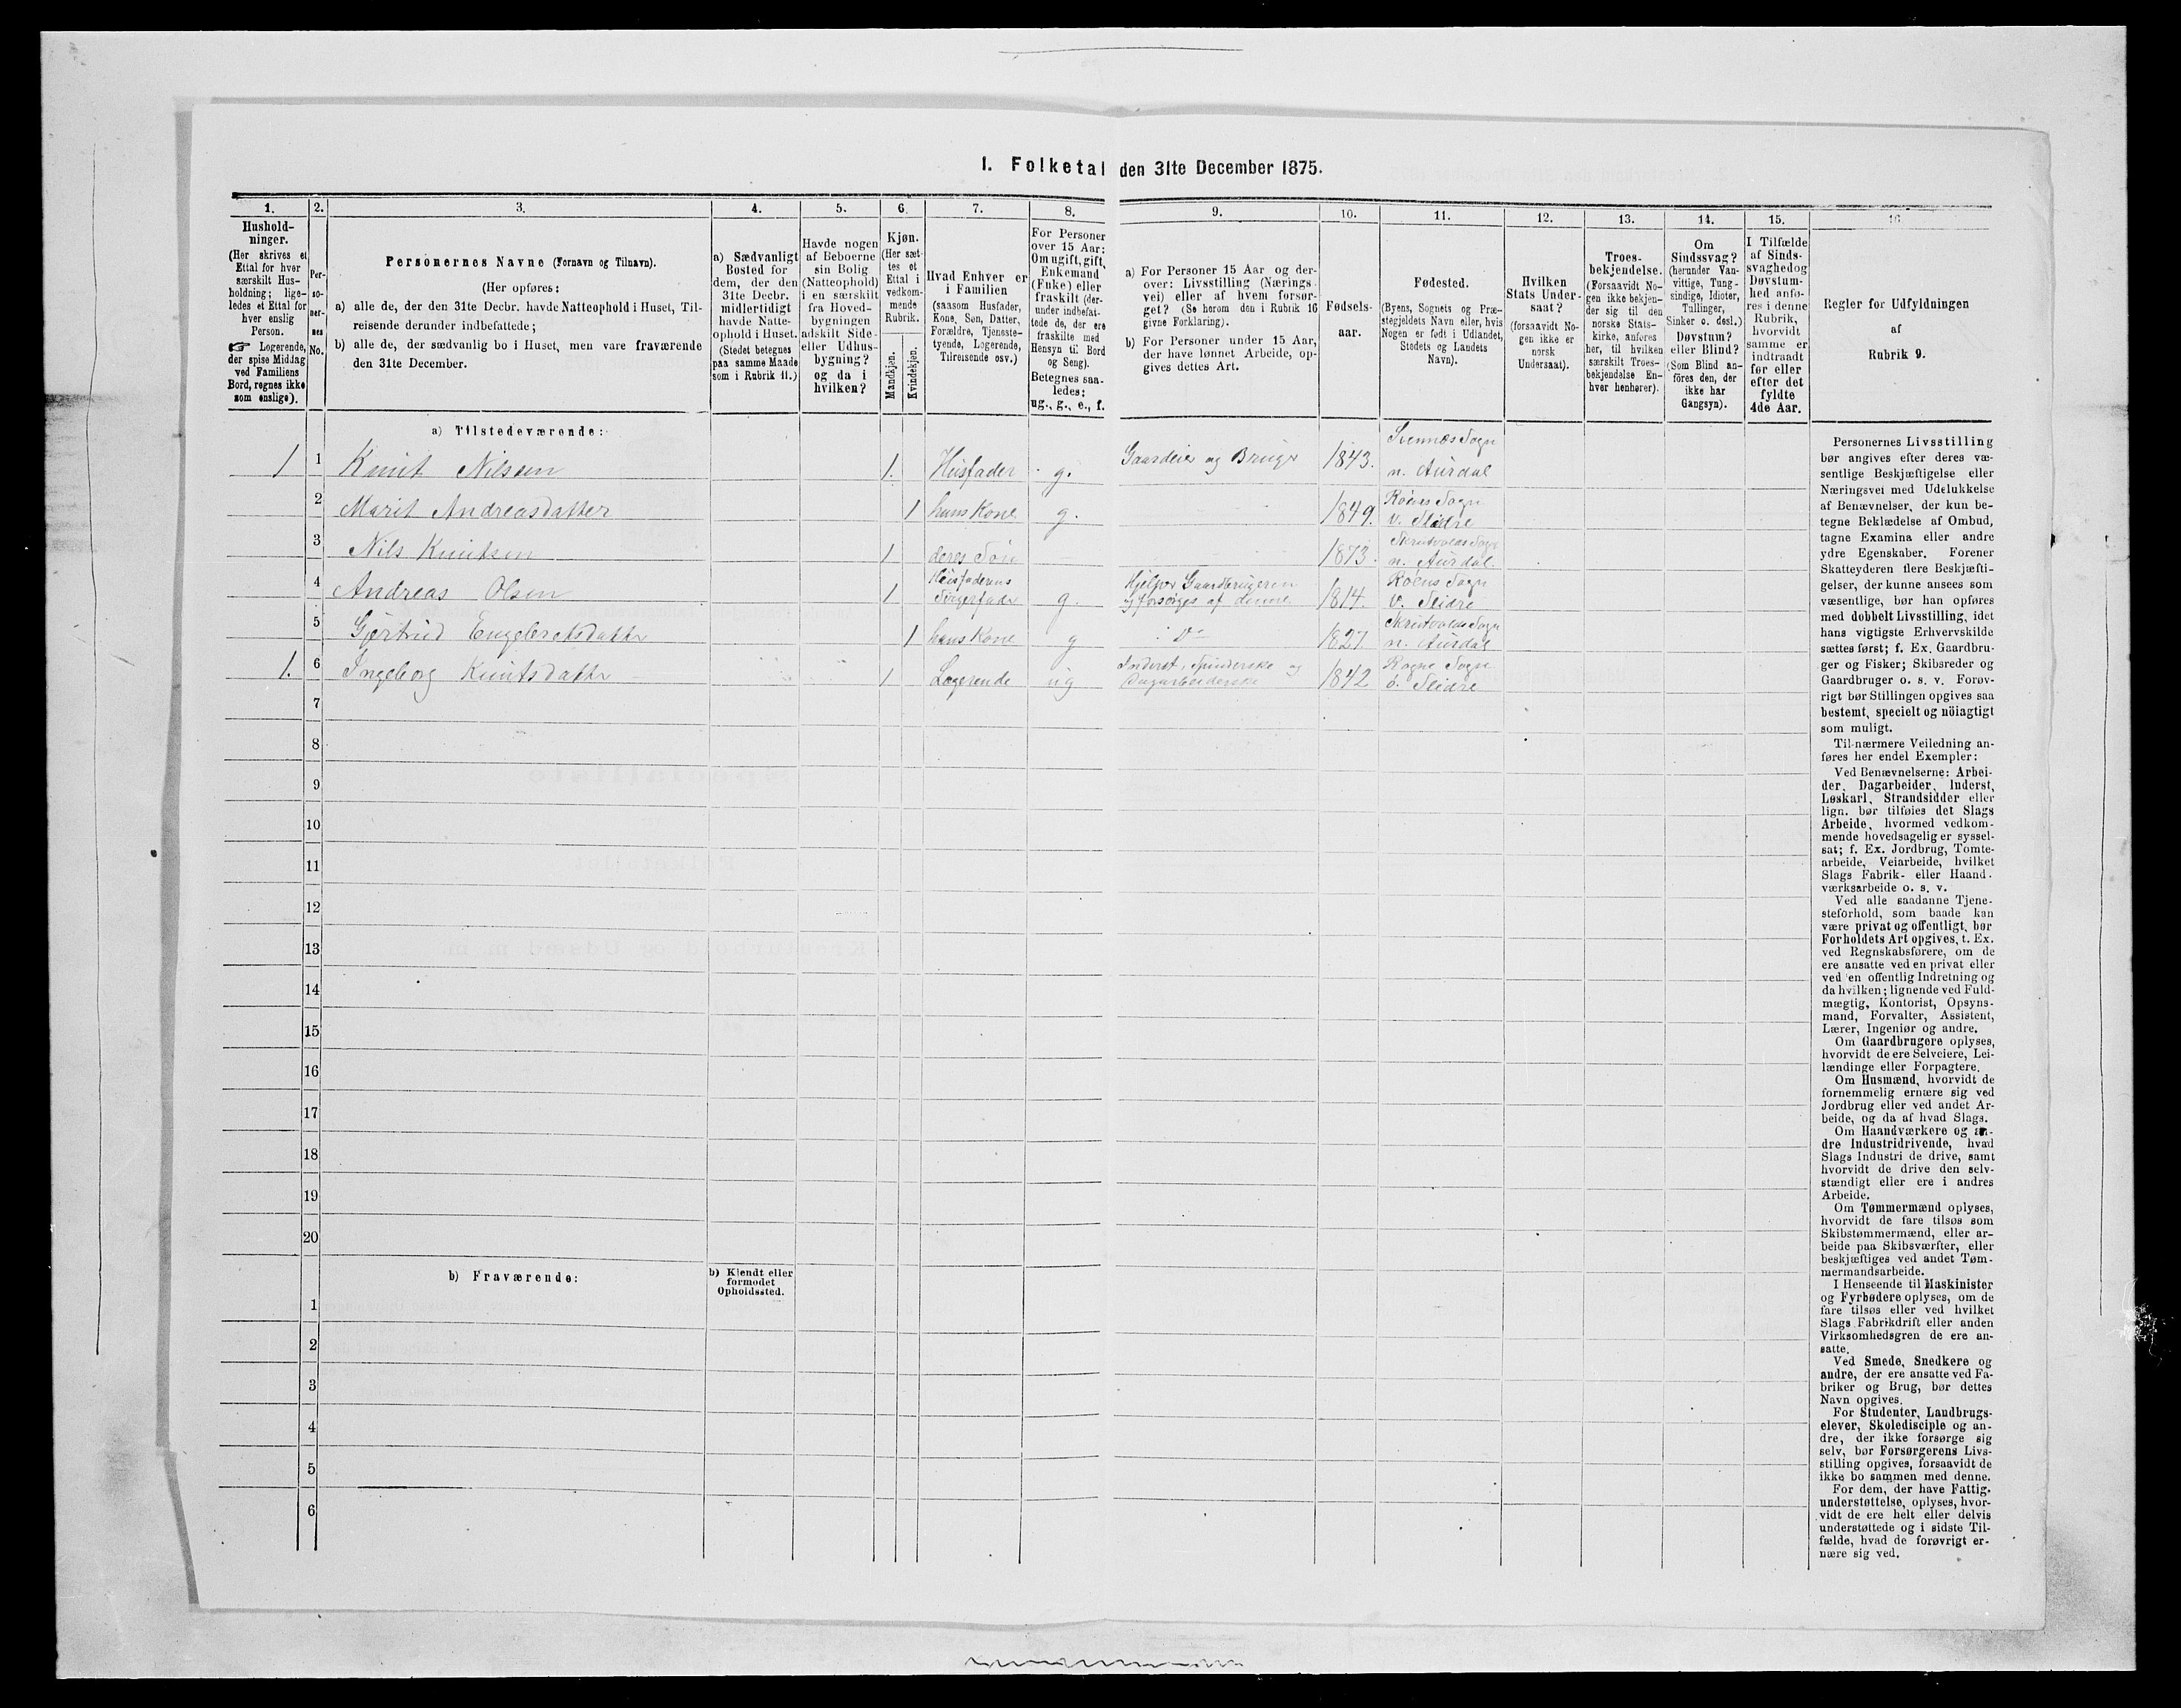 I. Folketal den 31te December 1875.
1.
2.
3.
4.
5.
6.
7.
8.
9.
10.
11.
12.
13.
14.
15.
16.
Hushold-
ninger.
(Her skrives et
Ettal for hver
særskilt Hus-
holdning; lige-
ledes et Ettal for
hver enslig
Person.
☞ Logerende,
der spise Middag
ved Familiens
Bord, regnes ikke
som enslige).
Per-
so-
ner-
nes
No.
Personernes Navne (Fornavn og Tilnavn).
(Her opføres:
a) alle de, der den 31te Decbr. havde Natteophold i Huset, Til-
reisende derunder indbefattede;
b) alle de, der sædvanlig bo i Huset, men vare fraværende
den 31te December.
a) Sædvanligt
Bosted for
dem, der den
31te Decbr.
midlertidigt
havde Natte-
ophold i Huset.
(Stedet betegnes
paa samme Maade
som i Rubrik 11.)
Havde nogen
af Beboerne
sin Bolig
(Natteophold)
i en særskilt
fra Hoved-
bygningen
adskilt Side-
eller Udhus-
bygning?
og da i
hvilken?
Kjøn.
(Her sæt-
tes et
Ettal i
vedkom-
mende
Rubrik.
Mandkjøn.
Kvindekjøn.
Hvad Enhver er
i Familien
(saasom Husfader,
Kone, Søn, Datter,
Forældre, Tjeneste-
tyende, Logerende,
Tilreisende osv.)
For Personer
over 15 Aar:
Om ugift, gift,
Enkemand
(Enke) eller
fraskilt (der-
under indbefat-
tede de, der ere
fraskilte med
Hensyn til Bord
og Seng).
Betegnes saa-
ledes:
ug., g., e., f.
a) For Personer 15 Aar og der-
over: Livsstilling (Nærings-
vei) eller af hvem forsør-
get? (Se herom den i Rubrik 16
givne Forklaring).
b) For Personer under 15 Aar,
der have lønnet Arbeide, op-
gives dettes Art.
Fødsels-
aar.
Fødested.
(Byens, Sognets og Præ-
stegjeldets Navn eller, hvis
Nogen er født i Udlandet,
Stedets og Landets
Navn).
Hvilken
Stats Under-
saat?
(forsaavidt No-
gen ikke er
norsk
Undersaat).
Troes-
bekjendelse.
(Forsaavidt No-
gen ikke bekjen-
der sig til den
norske Stats-
kirke, anføres
her, til hvilken
særskilt Troes-
bekjendelse En-
hver henhører).
Om
Sindssvag?
(herunder Van-
vittige, Tung-
sindige, Idioter,
Tullinger,
Sinker o. desl.)
Døvstum?
eller Blind?
(Som Blind an-
føres den, der
ikke har
Gangsyn).
I Tilfælde
af Sinds-
svaghed og
Døvstum-
hed anfø-
res i denne
Rubrik,
hvorvidt
samme er
indtraadt
før eller
efter det
fyldte
4de Aar.
Regler for Udfyldningen
af
Rubrik 9.
a) Tilstedeværende:
1 1 Knut Nilsen 1. Husfader g. Gaardeier og Bruger 1843. Svennæs Sogn n. Aurdal
2 Marit Andreasdatter 1 hans Kone g. 1849. Røens Sogn v. Slidre
3 Nils Knutsen 1 deres Søn 1873. Skrutvolds Sogn n. Aurdal.
4 Andreas Olsen 1 Husfaderens Svigerfader g. Hjelper Gaardbrugeren og forsørges af denne 1814. Røens Sogn v. Slidre
5 Gjertrud Engebretsdatter 1 hans Kone g do 1827. Skrutvolds Sogn n. Aurdal
1. 6 Ingeborg Knutsdatter 1 Logerende ug Inderst, Spinderske og Dagarbeiderske 1842 Rogne Sogn ø. Slidre
7
8
9
10
11
12
13
14
15
16
17
18
19
20
b) Fraværende:
b) Kjendt eller
formodet
Opholdssted.
1
2
3
4
5
6
Personernes Livsstilling
bør angives efter deres væ-
sentlige Beskjæftigelse eller
Næringsvei med Udelukkelse
af Benævnelser, der kun be-
tegne Beklædelse af Ombud,
tagne Examina eller andre
ydre Egenskaber. Forener
Skatteyderen flere Beskjæfti-
gelser, der kunne ansees som
væsentlige, bør han opføres
med dobbelt Livsstilling, idet
hans vigtigste Erhvervskilde
sættes først; f. Ex. Gaardbru-
ger og Fisker; Skibsreder og
Gaardbruger o. s. v. Forøv-
rigt bør Stillingen opgives saa
bestemt, specielt og nöiagtigt
som muligt.
Til nærmere Veiledning an-
føres her endel Exempler:
Ved Benævnelserne: Arbei-
der, Dagarbeider, Inderst,
Løskarl, Strandsidder eller
lign. bør tilføies det Slags
Arbeide, hvormed vedkom-
mende hovedsagelig er syssel-
sat; f. Ex. Jordbrug, Tomte-
arbeide, Veiarbeide, hvilket
Slags Fabrik- eller Haand-
værksarbeide o. s. v.
Ved alle saadanne Tjene-
steforhold, som baade kan
være privat og offentligt, bør
Forholdets Art opgives, t. Ex.
ved Regnskabsførere, om de
ere ansatte ved en privat eller
ved en offentlig Indretning og
da hvilken; lignende ved Fuld-
mægtig, Kontorist, Opsyns-
mand, Forvalter, Assistent,
Lærer, Ingeniør og andre.
Om Gaardbrugere oplyses,
hvorvidt de ere Selveiere, Lei-
lændinge eller Forpagtere.
Om Husmænd, hvorvidt de
fornemmelig ernære sig ved
Jordbrug eller ved andet Ar-
beide, og da af hvad Slags.
Om Haandværkere og an-
dre Industridrivende, hvad
Slags Industri de drive, samt
hvorvidt de drive den selv-
stændigt eller ere i andres
Arbeide.
Om Tømmermænd oplyses,
hvorvidt de fare tilsøs som
Skibstømmermænd, eller ar-
beide paa Skibsværfter, eller
beskjæftiges ved andet Tøm-
mermandsarbeide.
I Henseende til Maskinister
og Fyrbødere oplyses, om de
fare tilsøs eller ved hvilket
Slags Fabrikdrift eller anden
Virksomhedsgren de ere an-
satte.
Ved Smede, Snedkere og
andre, der ere ansatte ved Fa-
briker og Brug, bør dettes
Navn opgives.
For Studenter, Landbrugs-
elever, Skoledisciple og an-
dre, der ikke forsørge sig
selv, bør Forsørgerens Livs-
stilling opgives, forsaavidt de
ikke bo sammen med denne.
For dem, der have Fattig-
understøttelse, oplyses, hvor-
vidt de ere helt eller delvis
understøttede og i sidste Til-
fælde, hvad de forøvrigt er-
nære sig ved.